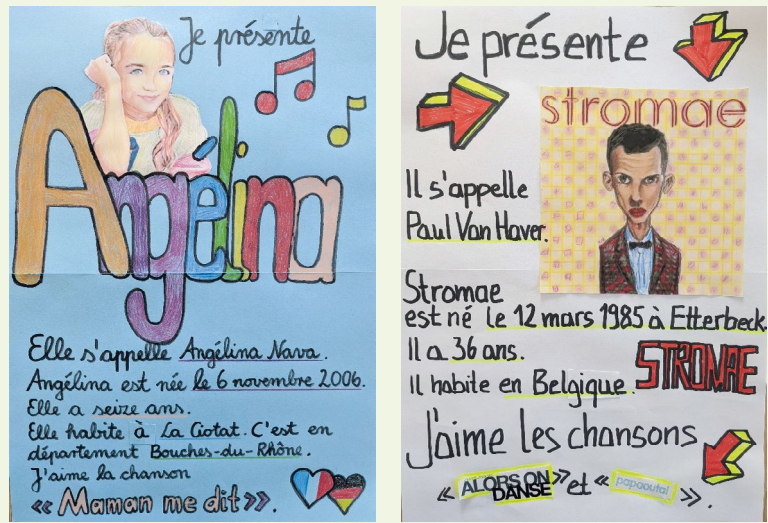 Je présente
Angélina
Elle s'appelle Angélina Nava.
Angélina est née le 6 novembre 2006.
Elle a seize ans.
Elle habite à La Ciotat. C'est en
département Bouches-du-Rhône.
J'aime la chanson
« Maman me dit ».
Je présente
stromae
Il s'appelle
Paul Van Haver.
Stromae
est né le 12 mars 1985 à Etterbeek.
Il a 36 ans.
Il habite en Belgique.
STROMAE
J'aime les chansons
« ALORS ON
DANSE » et « papaoutai ».